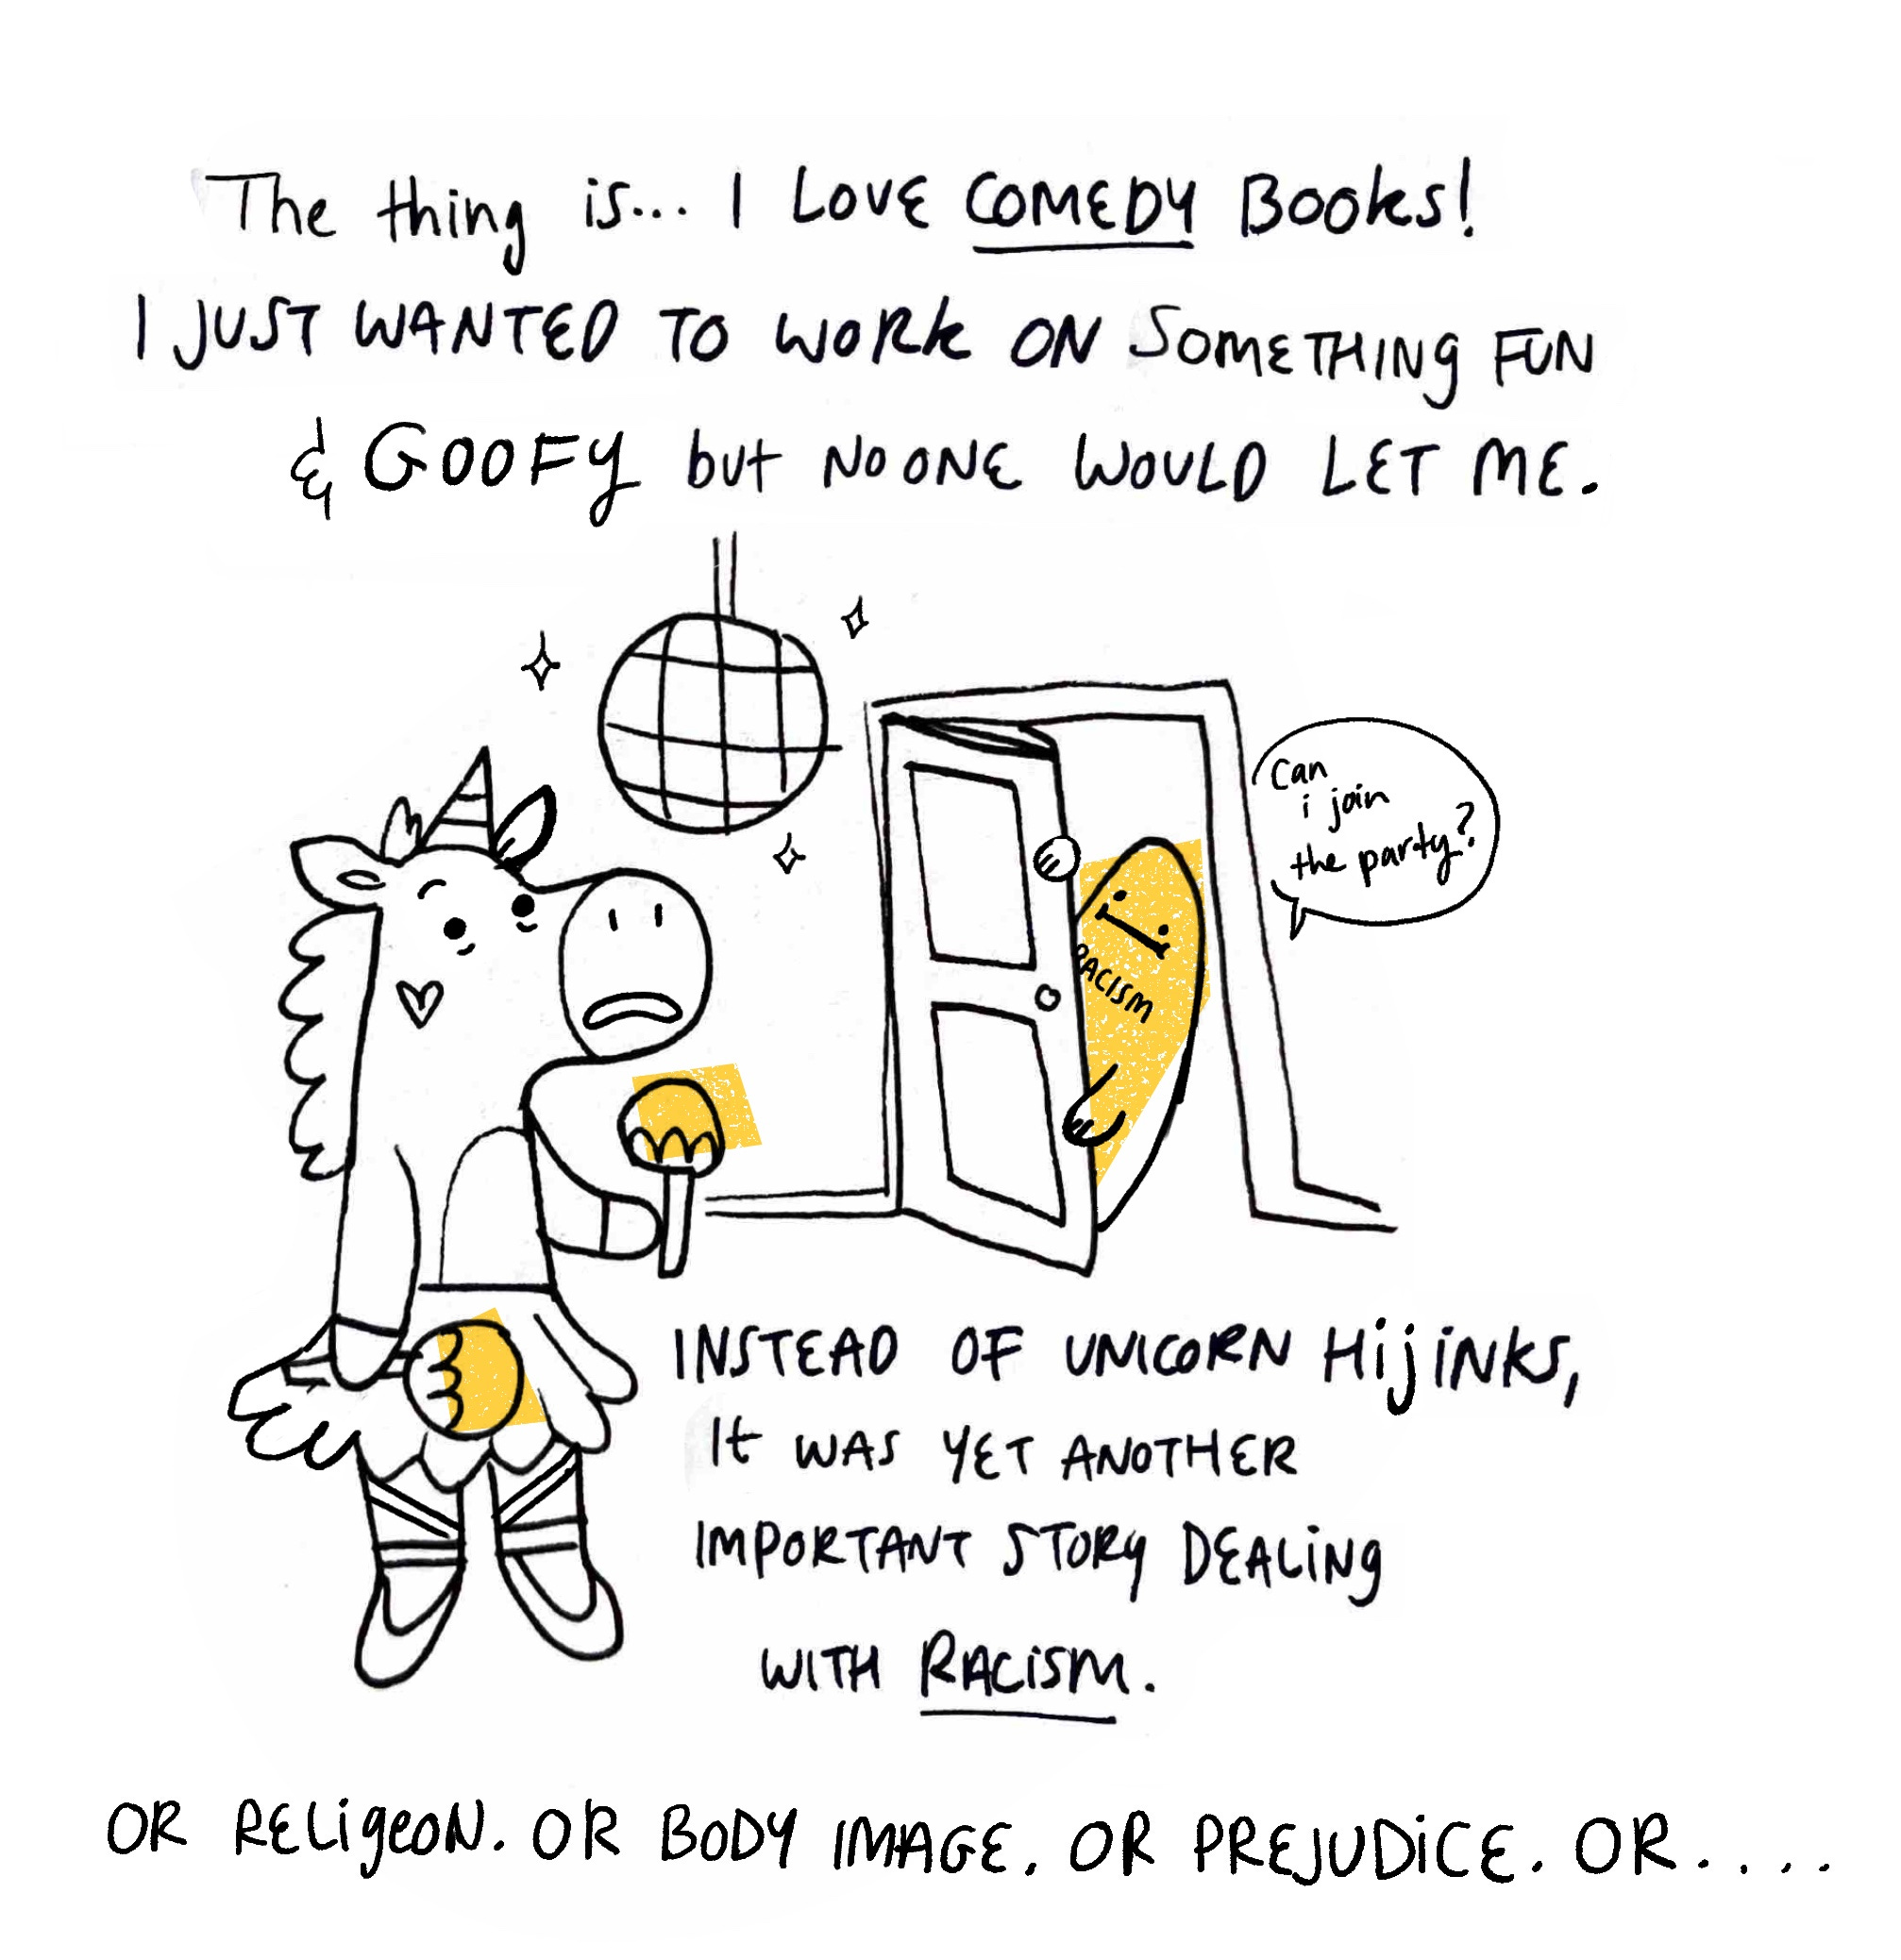 The thing is... I LOVE COMEDY BOOks!
I JUST WANTED TO WORk ON SOMETHING FUN
& GOOFY but NO ONE WOULD LET ME.
Can
i join
the party?
RACISM
INSTEAD OF UNICORN HijiNKS,
It WAS YET ANOTHER
IMPORTANT STORY DEALiNg
WITH RACiSM.
OR RELigeON. OR BODY IMAGE. OR PREJUDiCE. OR.....